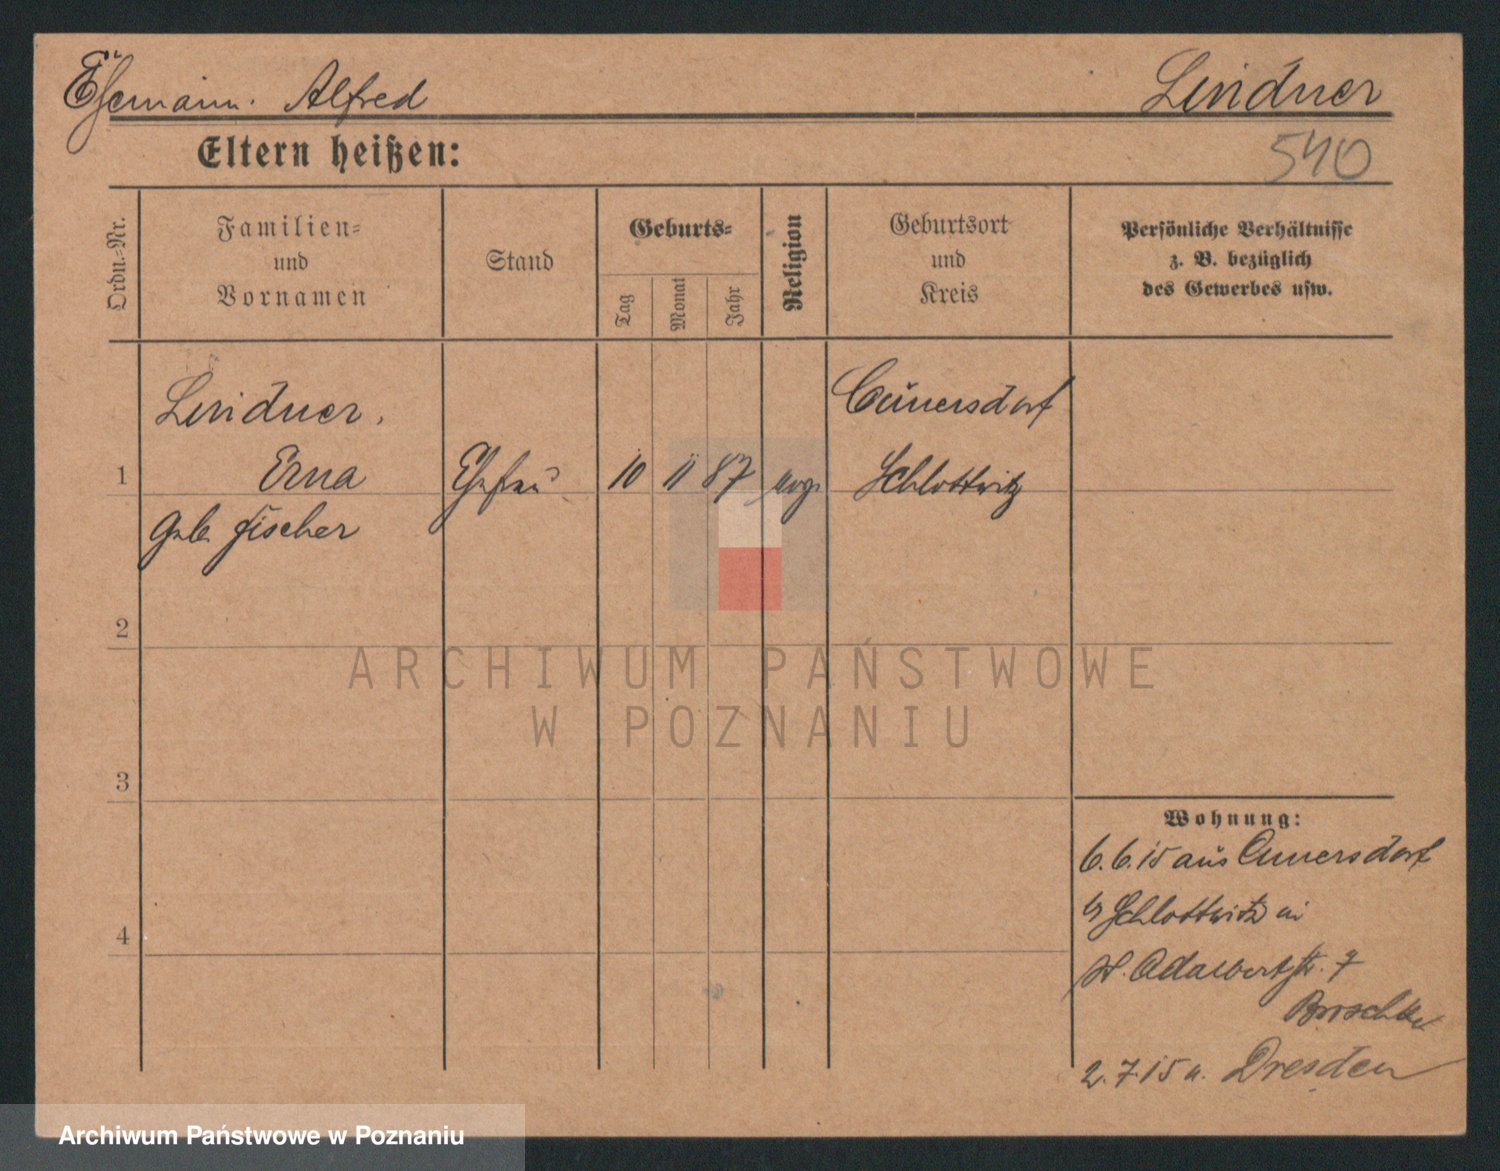 Ehemann. Alfred
Lindner
Eltern heißen:
540
Ordn.-Nr.
Familien-
und
Vornamen
Stand
Geburts-
Tag
Monat
Jahr
Religion
Geburtsort
und
Kreis
Persönliche Verhältnisse
z. B. bezüglich
des Gewerbes usw.
Lindner.
Cunersdorf
1 Erna Ehefrau 10 11 87 evgl Schlottwitz
geb. Fischer
2
3
4
Wohnung:
6.6.15 aus Cunersdorf
b/ Schlottwitz in
St. Adalbertstr. 7
2.7.15 n. Dresden
ARCHIWUM PAŃSTWOWE
W POZNANIU
Archiwum Państwowe w Poznaniu